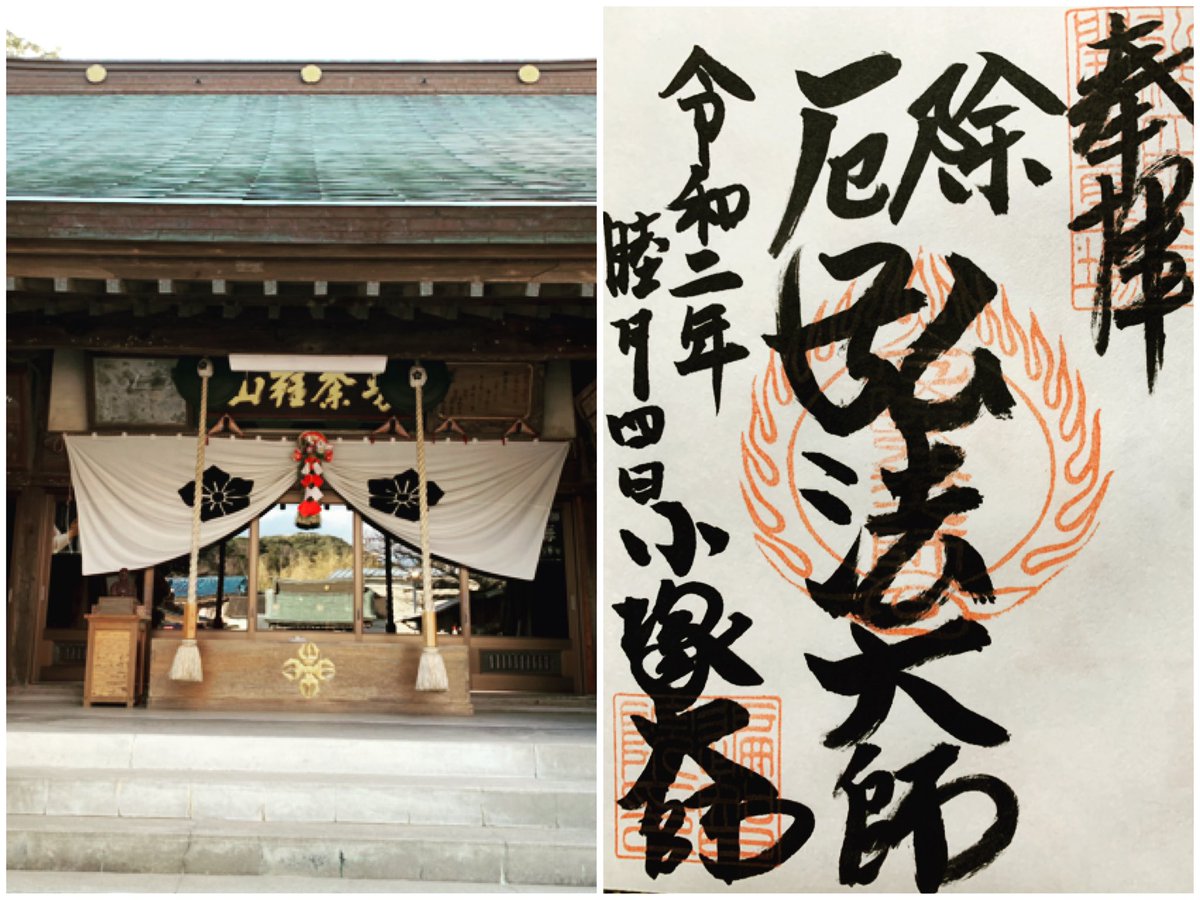 曼荼羅山
奉拝
厄除
弘法大師
令和二年
睦月四日小塚大師